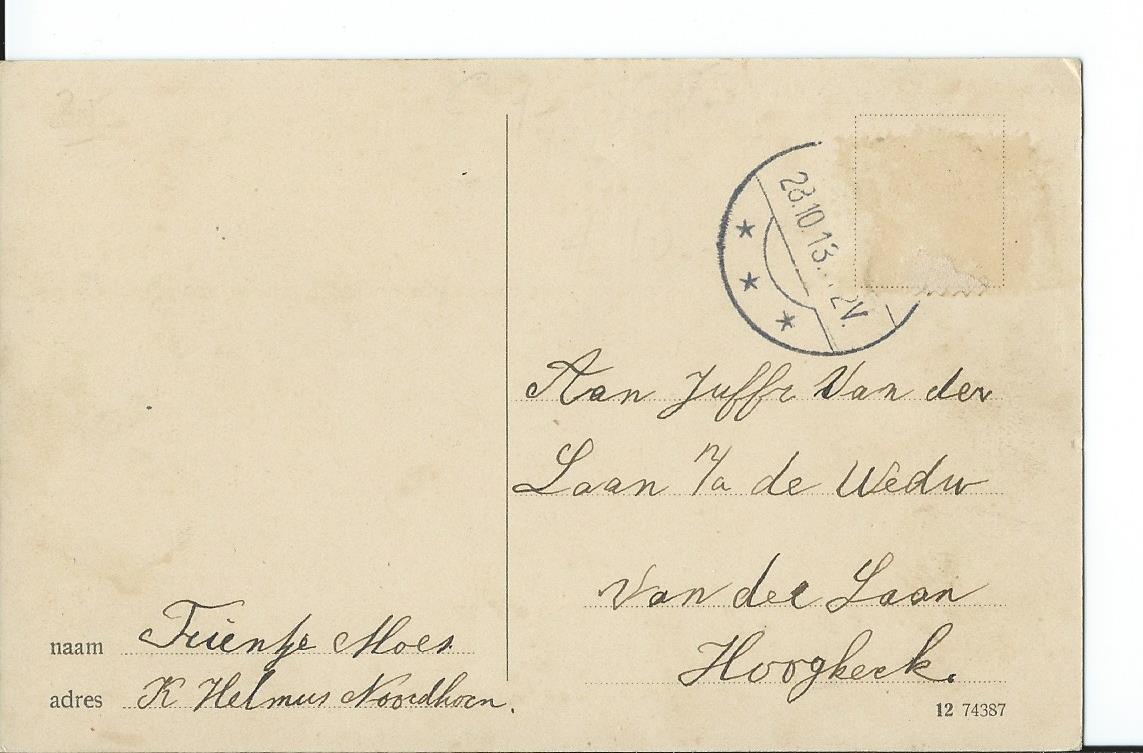 28.10.13. 2V.
Aan Juffr Van der
Laan p/a de Wedw
van der Laan
Hoogkerk.
naam Trientje Moes
adres K Helmus Noordhorn.
12 74387